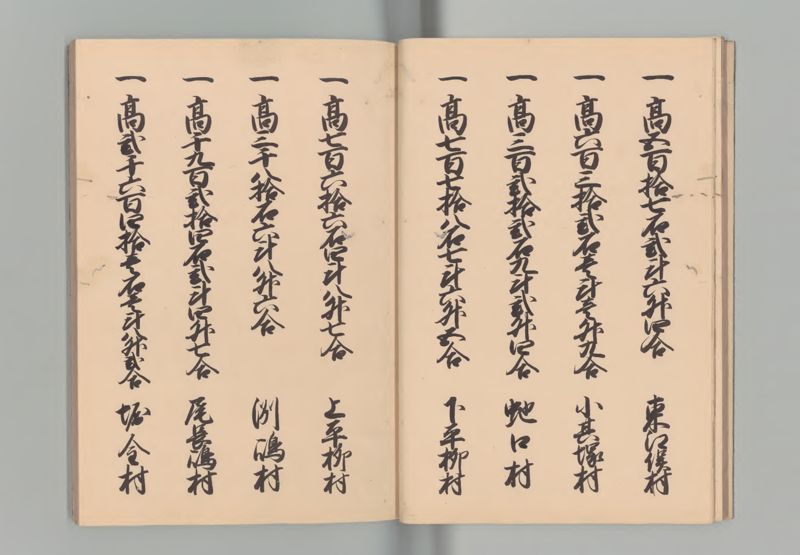 一 高五百拾七石弐斗六升四合 東江俣村
一 高六百三拾弐石壱斗壱升九合 小其塚村
一 高三百弐拾弐石九斗弐升四合 蛇口村
一 高七百七拾八石七斗六升五合 下平柳村
一 高七百六拾六石四斗八升七合 上平柳村
一 高三千八拾石六斗八升六合 渕嶋村
一 高千九百弐拾四石弐斗四升七合 尾長嶋村
一 高弐千六百四拾壱石壱斗八升弐合 堀金村